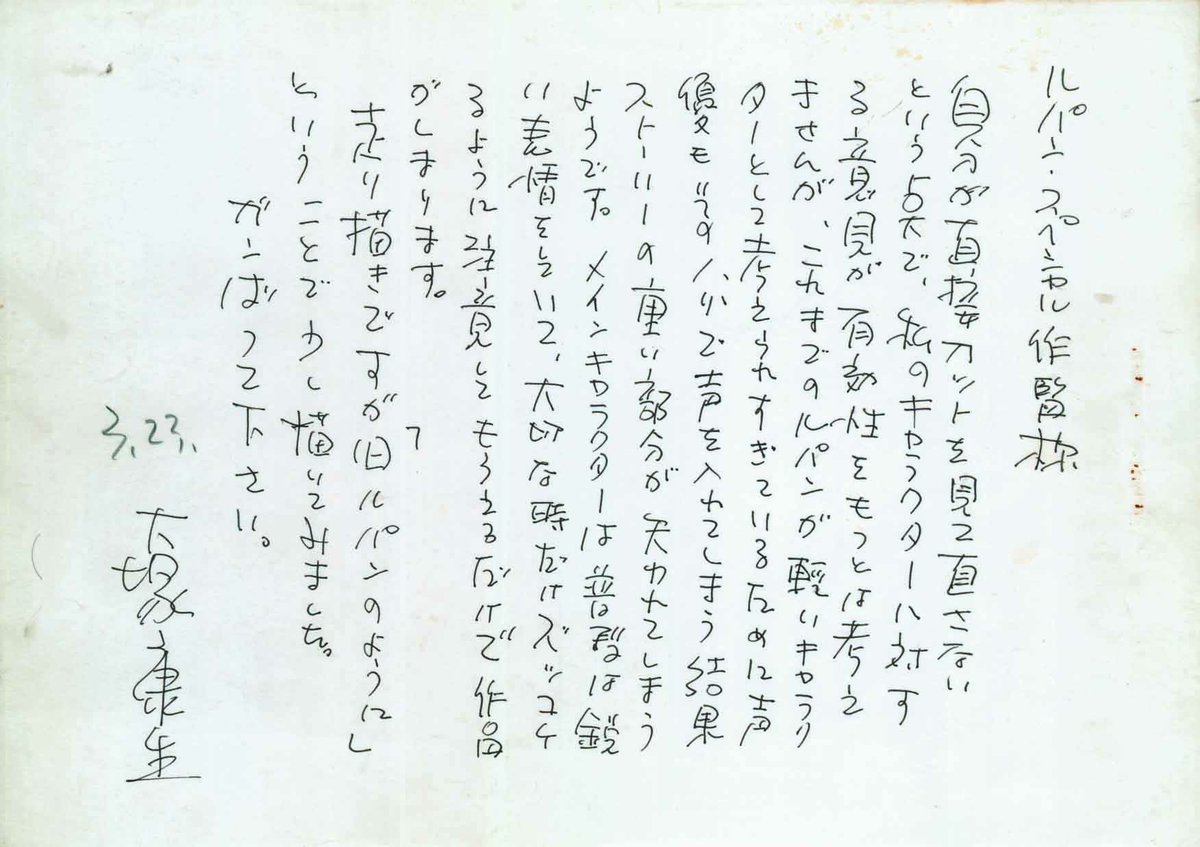 ルパン・スペシャル作監様
自分が直接カットを見て直さない
という点で、私のキャラクターに対す
る意見が有効性をもつとは考え
ませんが、これまでのルパンが軽いキャラク
ターとして考えられすぎているために声
優もそのノリで声を入れてしまう結果
ストーリーの重い部分が失われてしまう
ようです。メインキャラクターは普段は鋭
い表情をしていて、大切な時だけズッコケ
るように注意してもらえるだけで作品
がしまります。
走り描きですが「旧ルパンのように」
ということで少し描いてみました。
ガンばって下さい。
3.23.
大塚康生